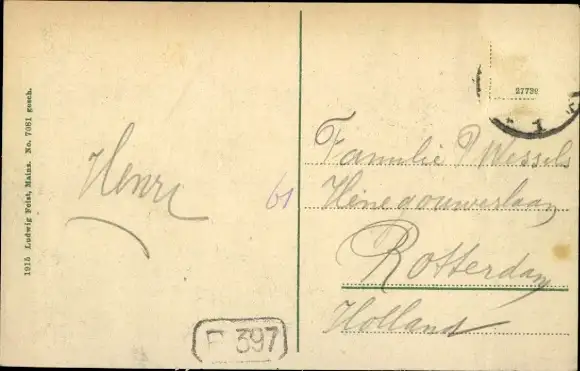 1915 Ludwig Feist, Mainz. No. 7081 gesch.
Henri
61
27739
1
Familie P Wessels
Henegouwerlaan
Rotterdam
Holland
397